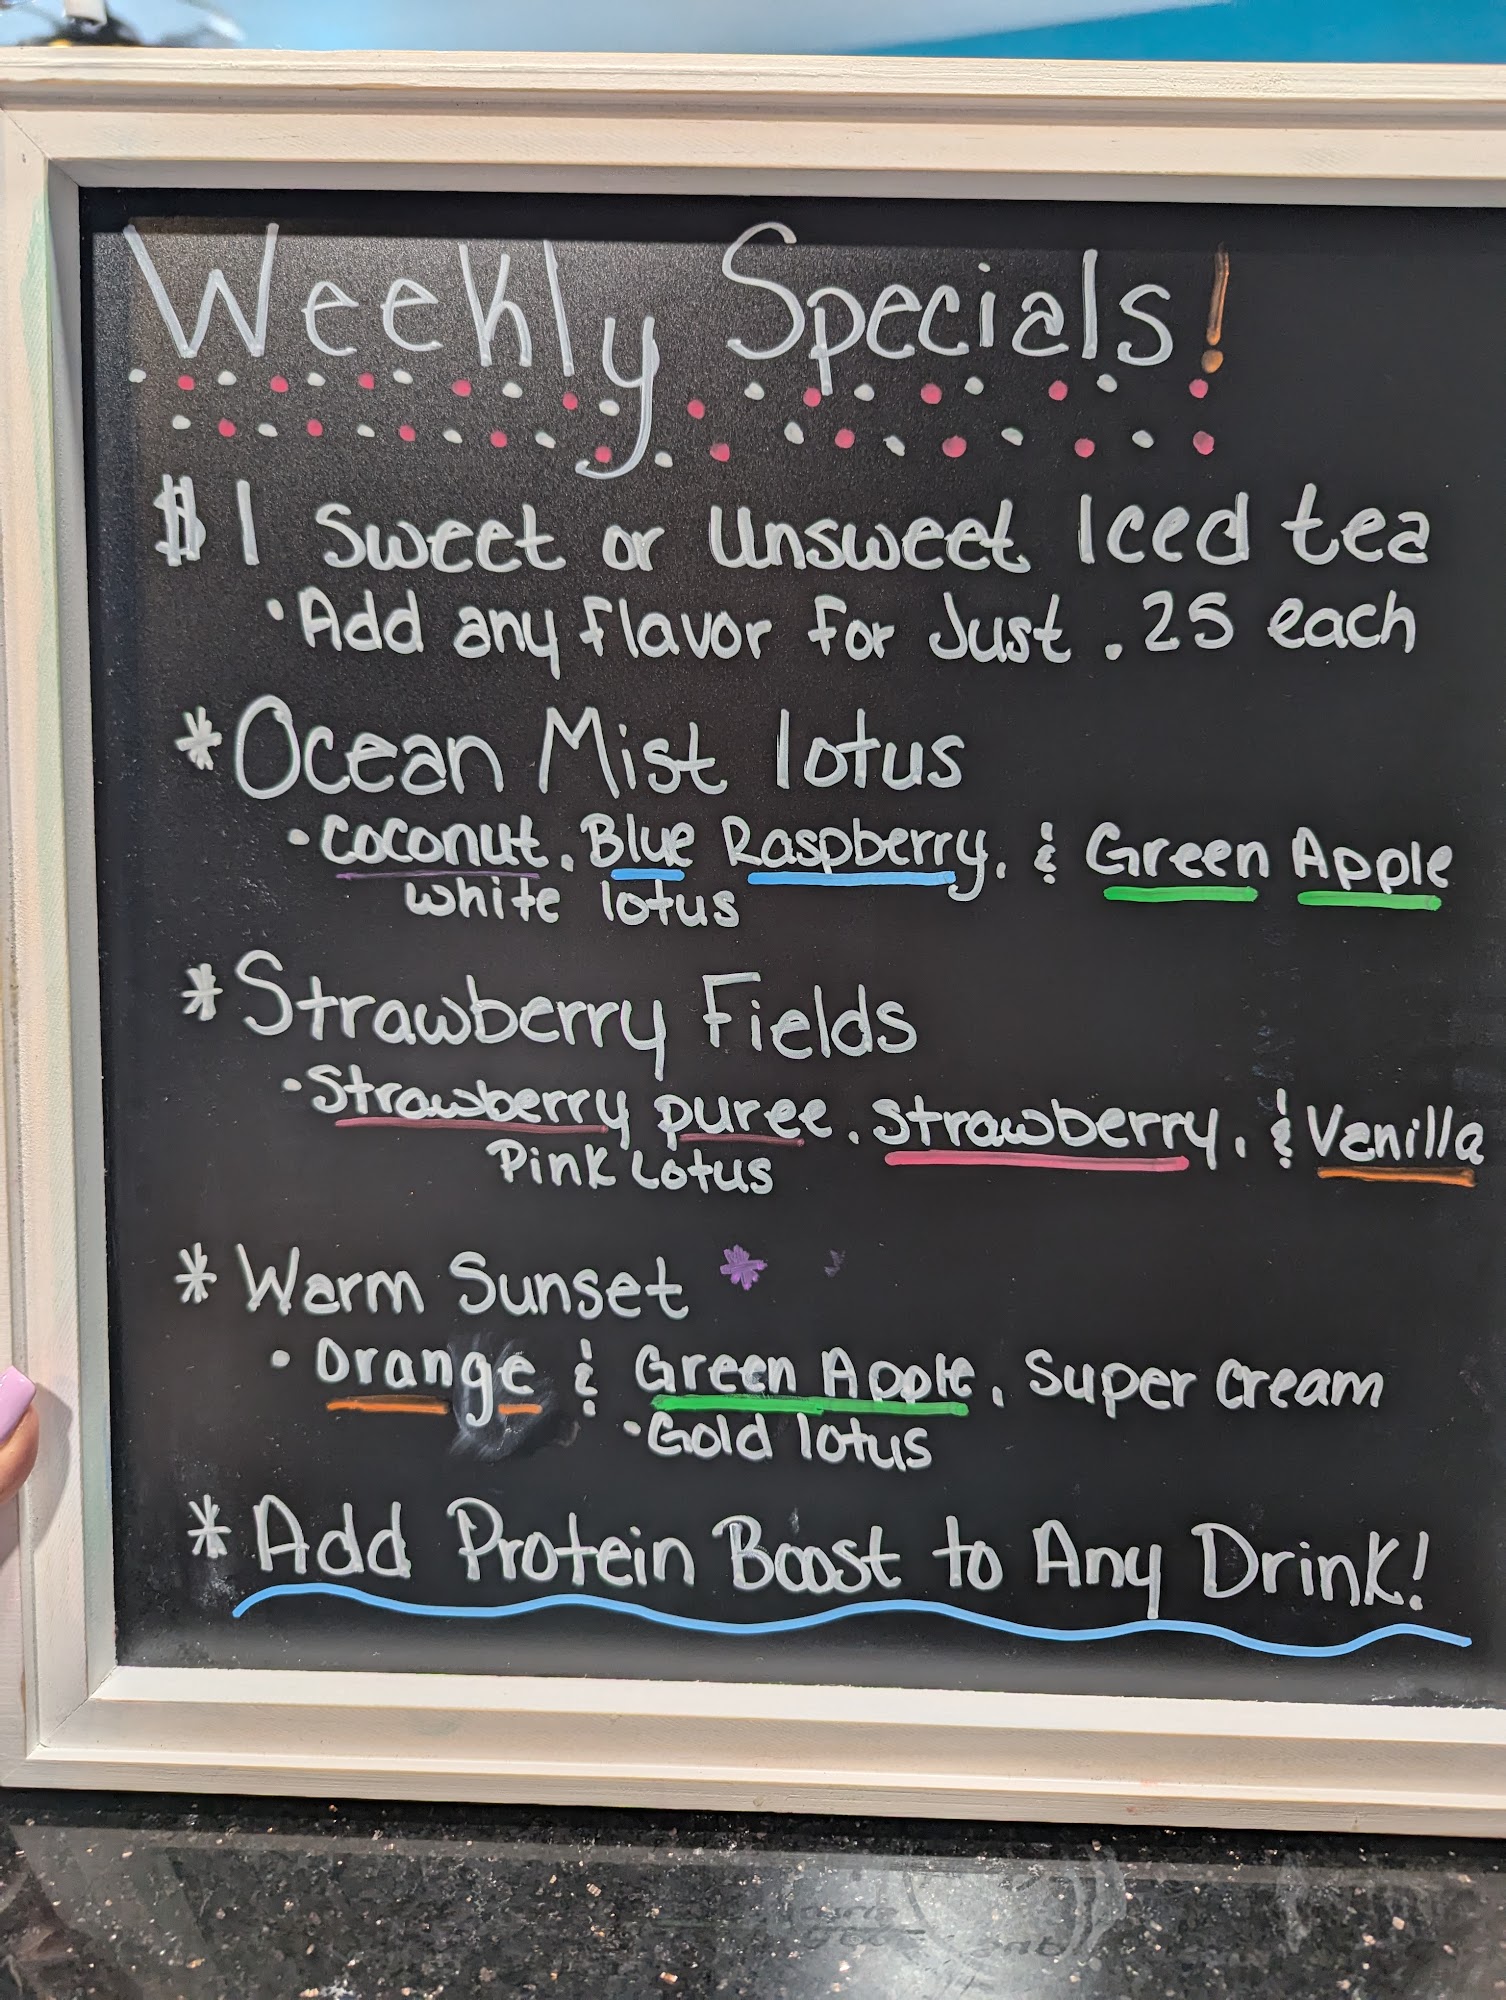 Weekly Specials!
$1 Sweet or Unsweet Iced tea
• Add any flavor for Just .25 each
* Ocean Mist lotus
• Coconut, Blue Raspberry, & Green Apple
white lotus
* Strawberry Fields
• Strawberry puree, strawberry, & Venilla
Pink Lotus
* Warm Sunset *
• Orange & Green Apple, Super Cream
• Gold lotus
* Add Protein Boost to Any Drink!